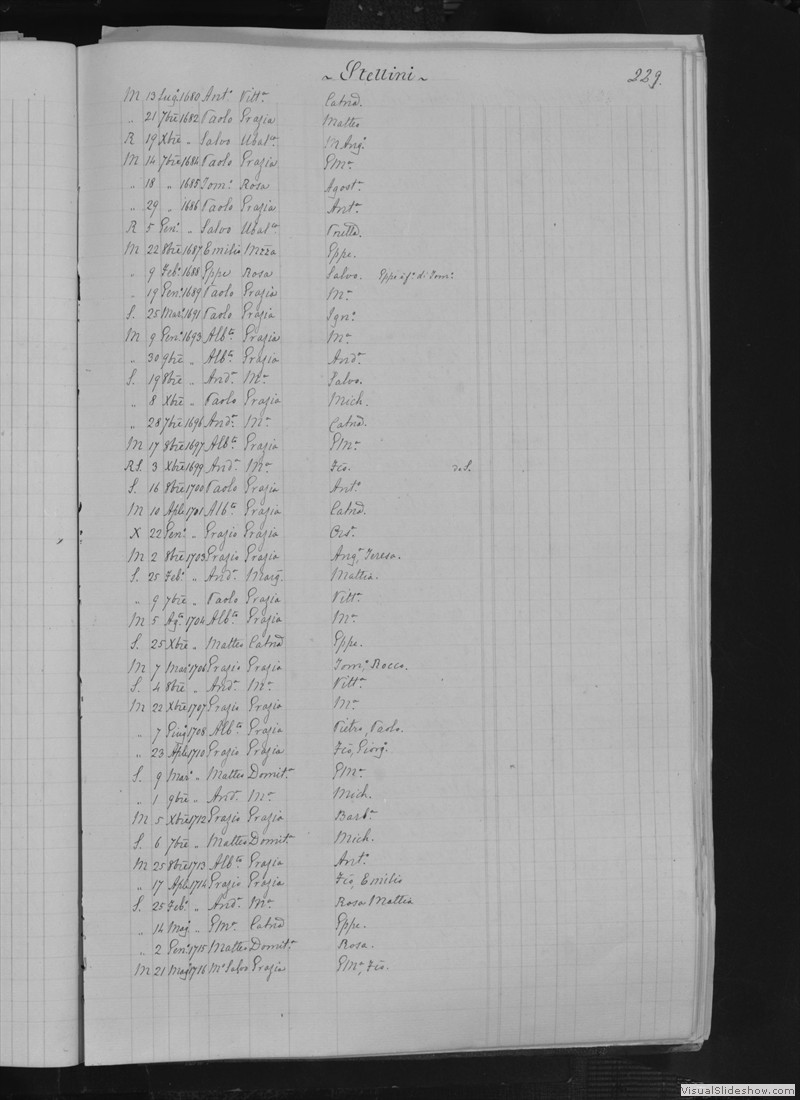 ~ Stellini ~
229.
M 13 Lug. 1680 Ant. Vittª Catnd.
" 21 7bre 1682 Paolo Grazia Matteo
R 19 Xbre " Salvo Ubalca M Ang.
M 14 7bre 1684 Paolo Grazia GMª
" 18 " 1685 Tom. Rosa Agostª
" 29 " 1686 Paolo Grazia Antª
R 5 Gen. " Salvo Ubalca
M 22 8bre 1687 Emilio Gppe.
" 9 Feb. 1688 Gppe Rosa Salvo. Gppe è fº di Tomº
" 19 Gen. 1689 Paolo Grazia Mª
S. 25 Mar. 1691 Paolo Grazia Ignº
M 9 Gen. 1693 Albca Grazia Mª
" 30 9bre " Albca Grazia Andª
S. 19 8bre " Andª Mª Salvo.
" 8 Xbre " Paolo Grazia Mich.
" 28 7bre 1696 Andª Mª Catnd.
M 17 8bre 1697 Albca Grazia GMª
RS. 3 Xbre 1699 Andª Mª Fco. da S.
S. 16 8bre 1700 Paolo Grazia Antº
M 10 Aple 1701 Albca Grazia Catnd.
X 22 Gen. " Grazio Grazia
M 2 8bre 1703 Grazio Grazia Angª, Teresa.
S. 25 Feb. " Andª Marg. Mattia.
" 9 7bre " Paolo Grazia Vittª
M 5 Agº 1704 Albca Grazia Mª
S. 25 Xbre " Matteo Catnd Gppe.
M 7 Mar. 1706 Grazio Grazia Tomº, Rocco.
S. 4 8bre " Andª Mª Vittª
M 22 Xbre 1707 Grazio Grazia Mª
" 7 Giug. 1708 Albca Grazia Pietro, Paolo.
" 23 Aple 1710 Grazio Grazia Fco, Giorgº
S. 9 Marº " Matteo Domitª GMª
" 1 9bre " Andª Mª Mich.
M 5 Xbre 1712 Grazio Grazia Barbª
S. 6 7bre " Matteo Domitª Mich.
M 25 8bre 1713 Albca Grazia Antº
" 17 Aple 1714 Grazio Grazia Fco, Emilio
S. 25 Feb. " Andª Mª Rosa Mattia
" 14 Mag. " GMª Catnd Gppe.
" 2 Gen. 1715 Matteo Domitª Rosa.
M 21 Mag. 1716 Mº Salvo Grazia GMª, Fco.
VisualSlideshow.com